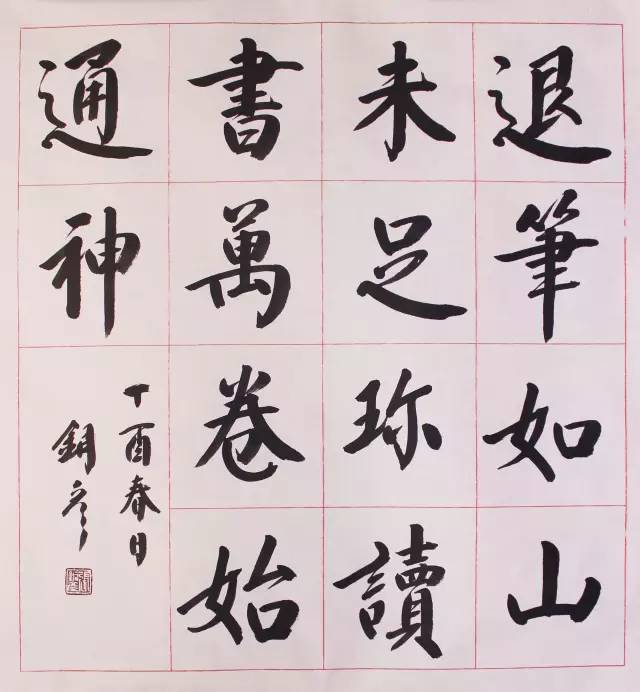 退筆如山
未足珎讀
書萬卷始
通神
丁酉春日